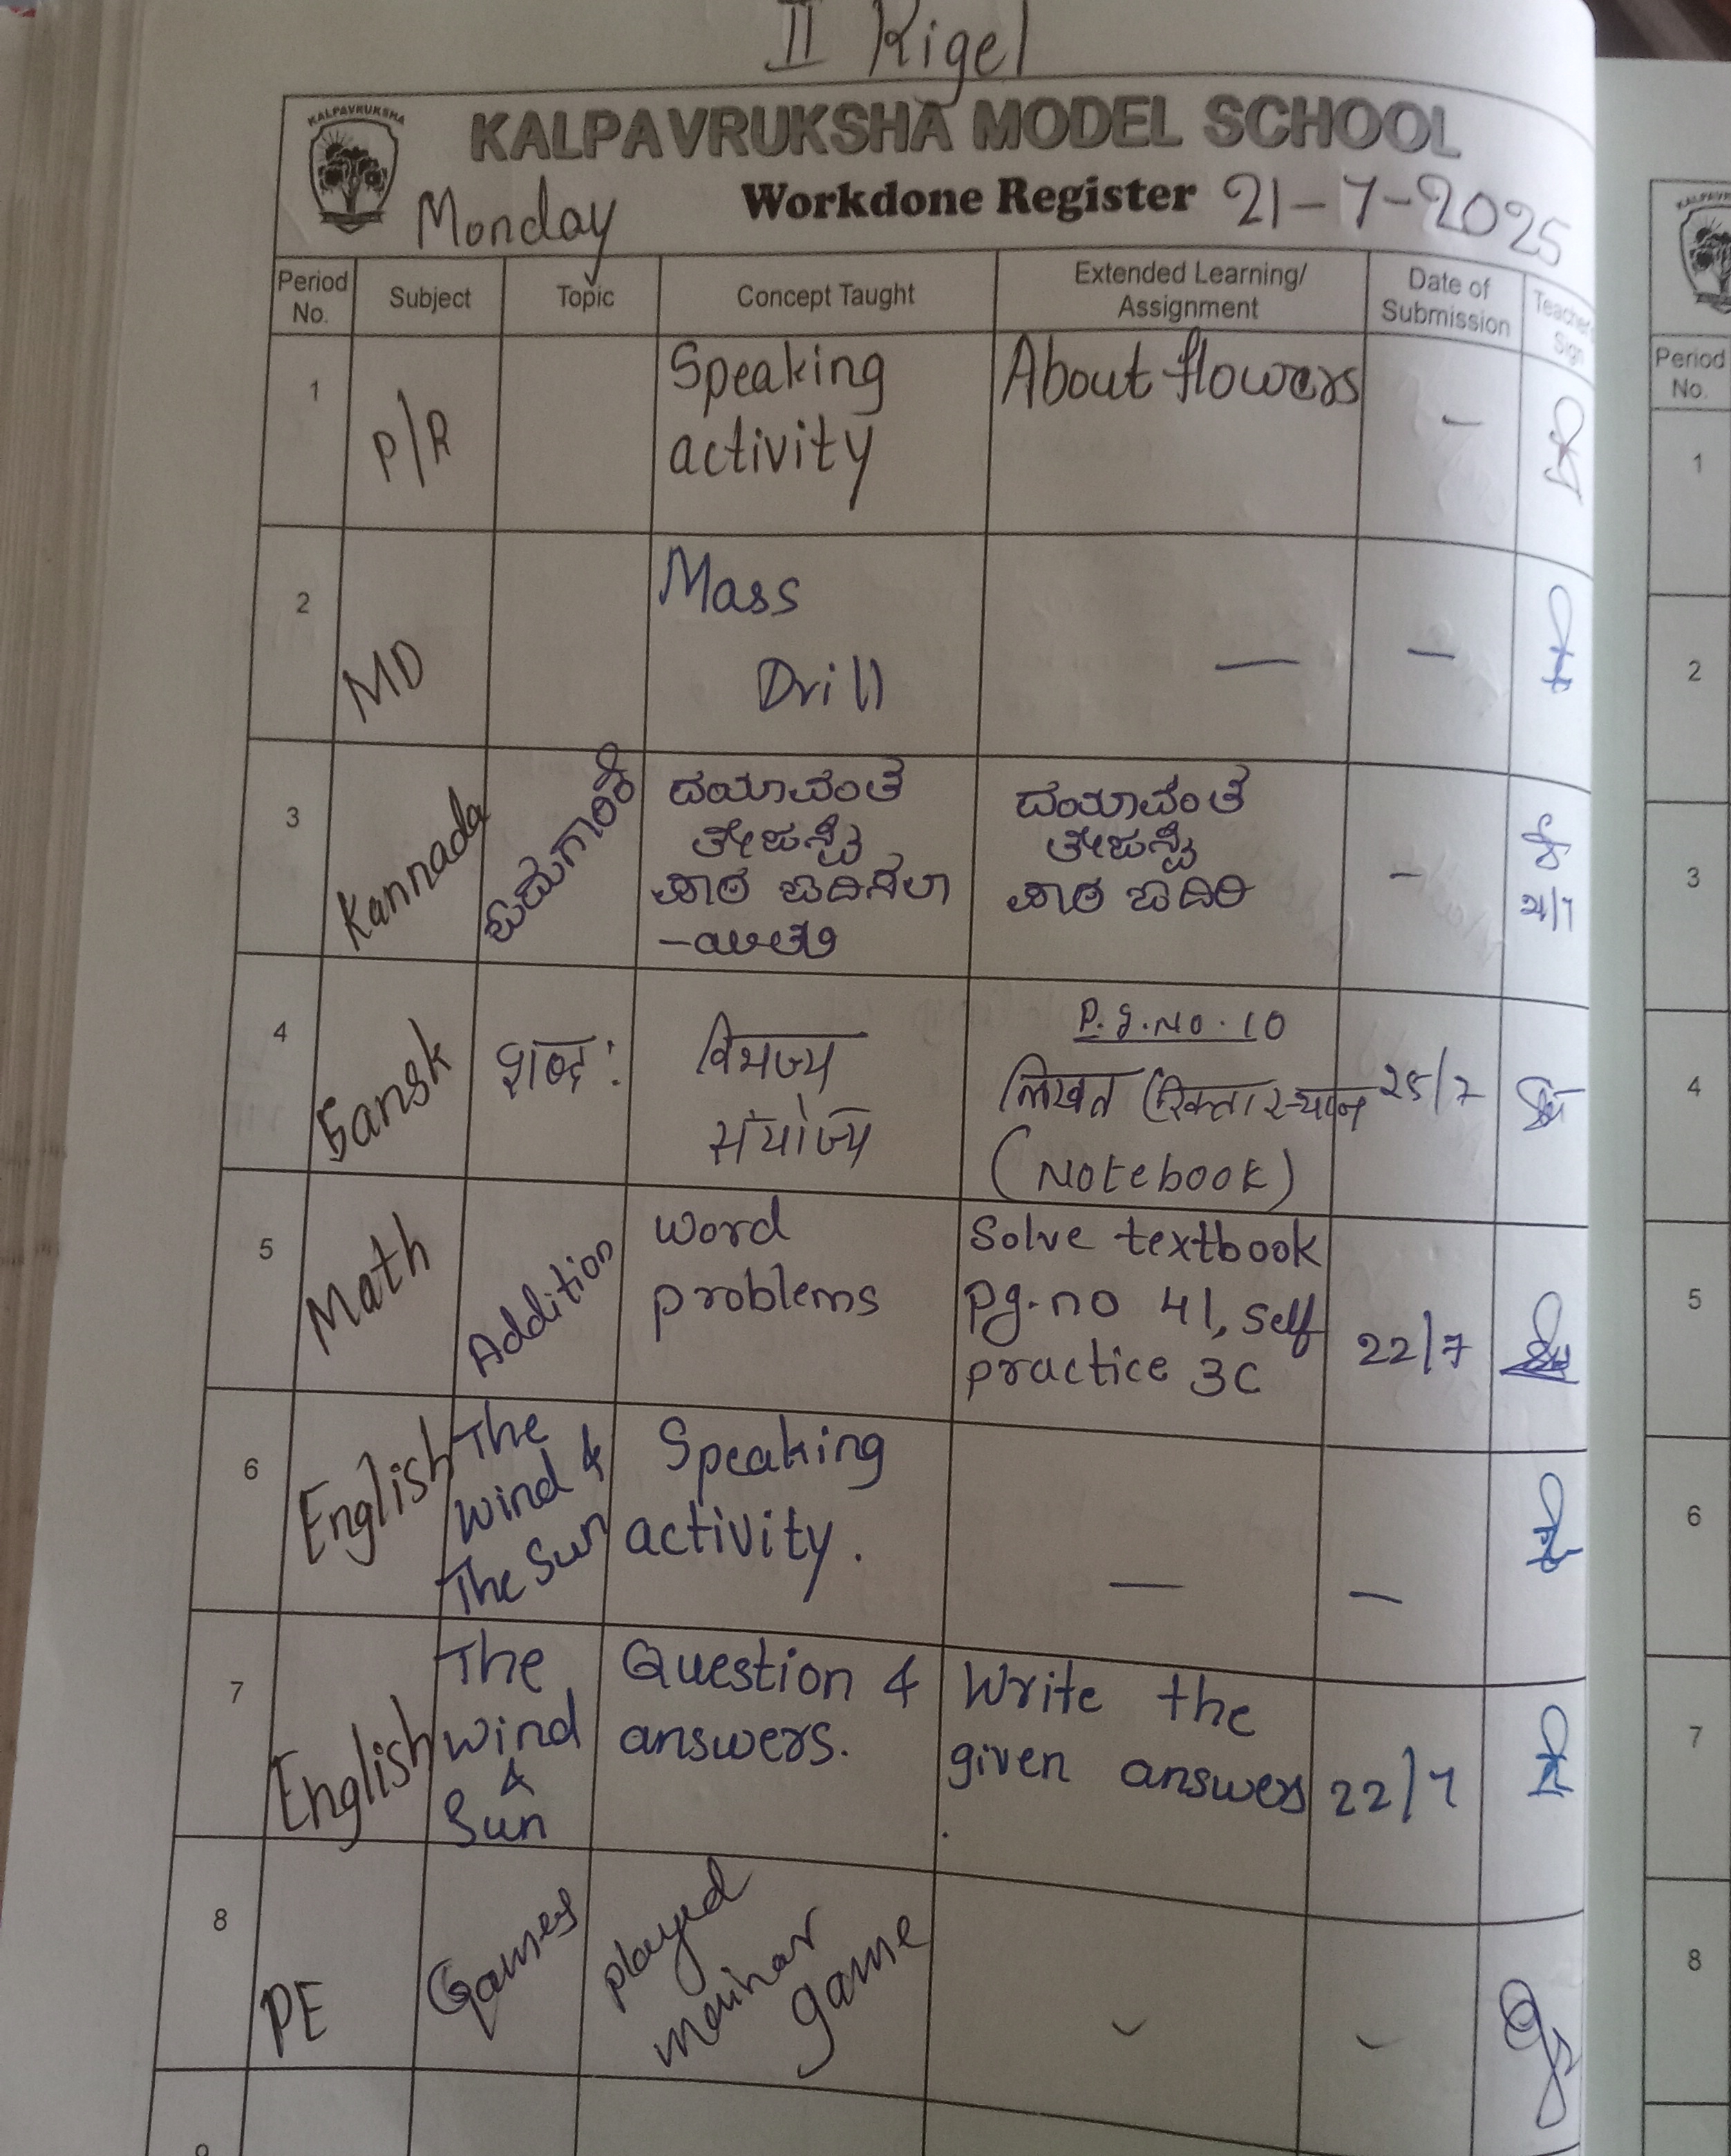 II Rigel
KALPAVRUKSHA
KALPAVRUKSHA MODEL SCHOOL
Monday Workdone Register 21-7-2025
Period No. Subject Topic Concept Taught Extended Learning/ Assignment Date of Submission Teacher Sign
1 P/R Speaking About flowers -
activity
2 MD Mass
Drill - -
3 Kannada ದಯಾವಂತ ದಯಾವಂತ
ಪಾಠ ಓದಿರಿ -
4 Sansk शब्द: विभज्य P.g.No.10
संयोज्य लिखत (रिक्तास्थान 25/7
(Notebook)
5 Math Addition word Solve textbook
problems pg.no 41, self
practice 3C 22/7
6 English The Speaking
wind & activity.
The Sun - -
7 English The Question & Write the
wind answers. given answers 22/7
&
Sun
8 PE Games played
game
9
Period
No.
1
2
3
4
5
6
7
8